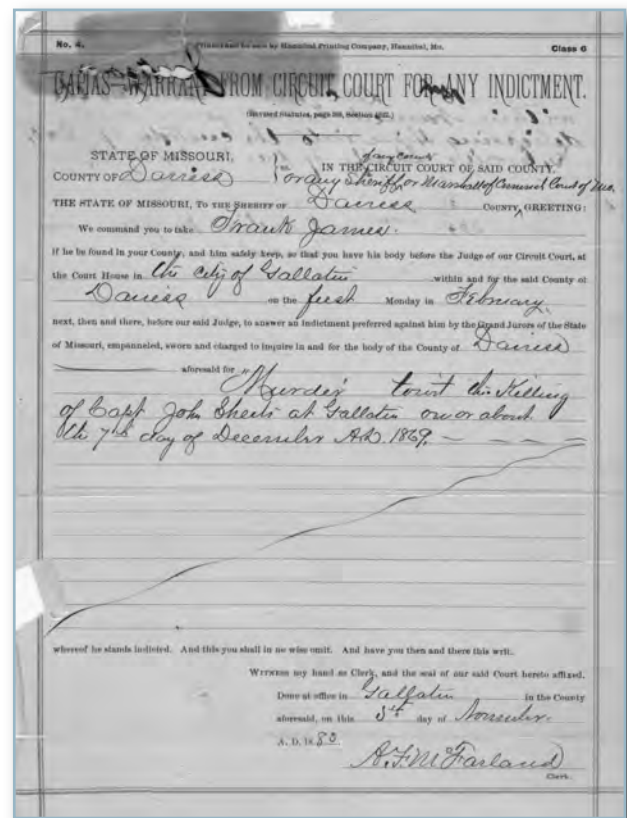 No. 4. Printed and for sale by Hannibal Printing Company, Hannibal, Mo. Class 6
CAPIAS WARRANT FROM CIRCUIT COURT FOR ANY INDICTMENT.
(Revised Statutes, page Section
STATE OF MISSOURI,
COUNTY OF Daviess
IN THE CIRCUIT COURT OF SAID COUNTY.
or any Sheriff, or Marshall of Criminal Court of Mo.
THE STATE OF MISSOURI, TO THE SHERIFF OF Daviess COUNTY, GREETING:
We command you to take Frank James.
if he be found in your County, and him safely keep, so that you have his body before the Judge of our Circuit Court, at
the Court House in the city of Gallatin within and for the said County of
Daviess on the first Monday in February
next, then and there, before our said Judge, to answer an indictment preferred against him by the Grand Jurors of the State
of Missouri, empanneled, sworn and charged to inquire in and for the body of the County of Daviess
aforesaid for Murder towit the Killing
of Capt John Sheets at Gallatin on or about
the 7th day of December A.D. 1869.
whereof he stands indicted. And this you shall in no wise omit. And have you then and there this writ.
WITNESS my hand as Clerk, and the seal of our said Court hereto affixed.
Done at office in Gallatin in the County
aforesaid, on this day of November.
A. D. 18
A.F. McFarland
Clerk.